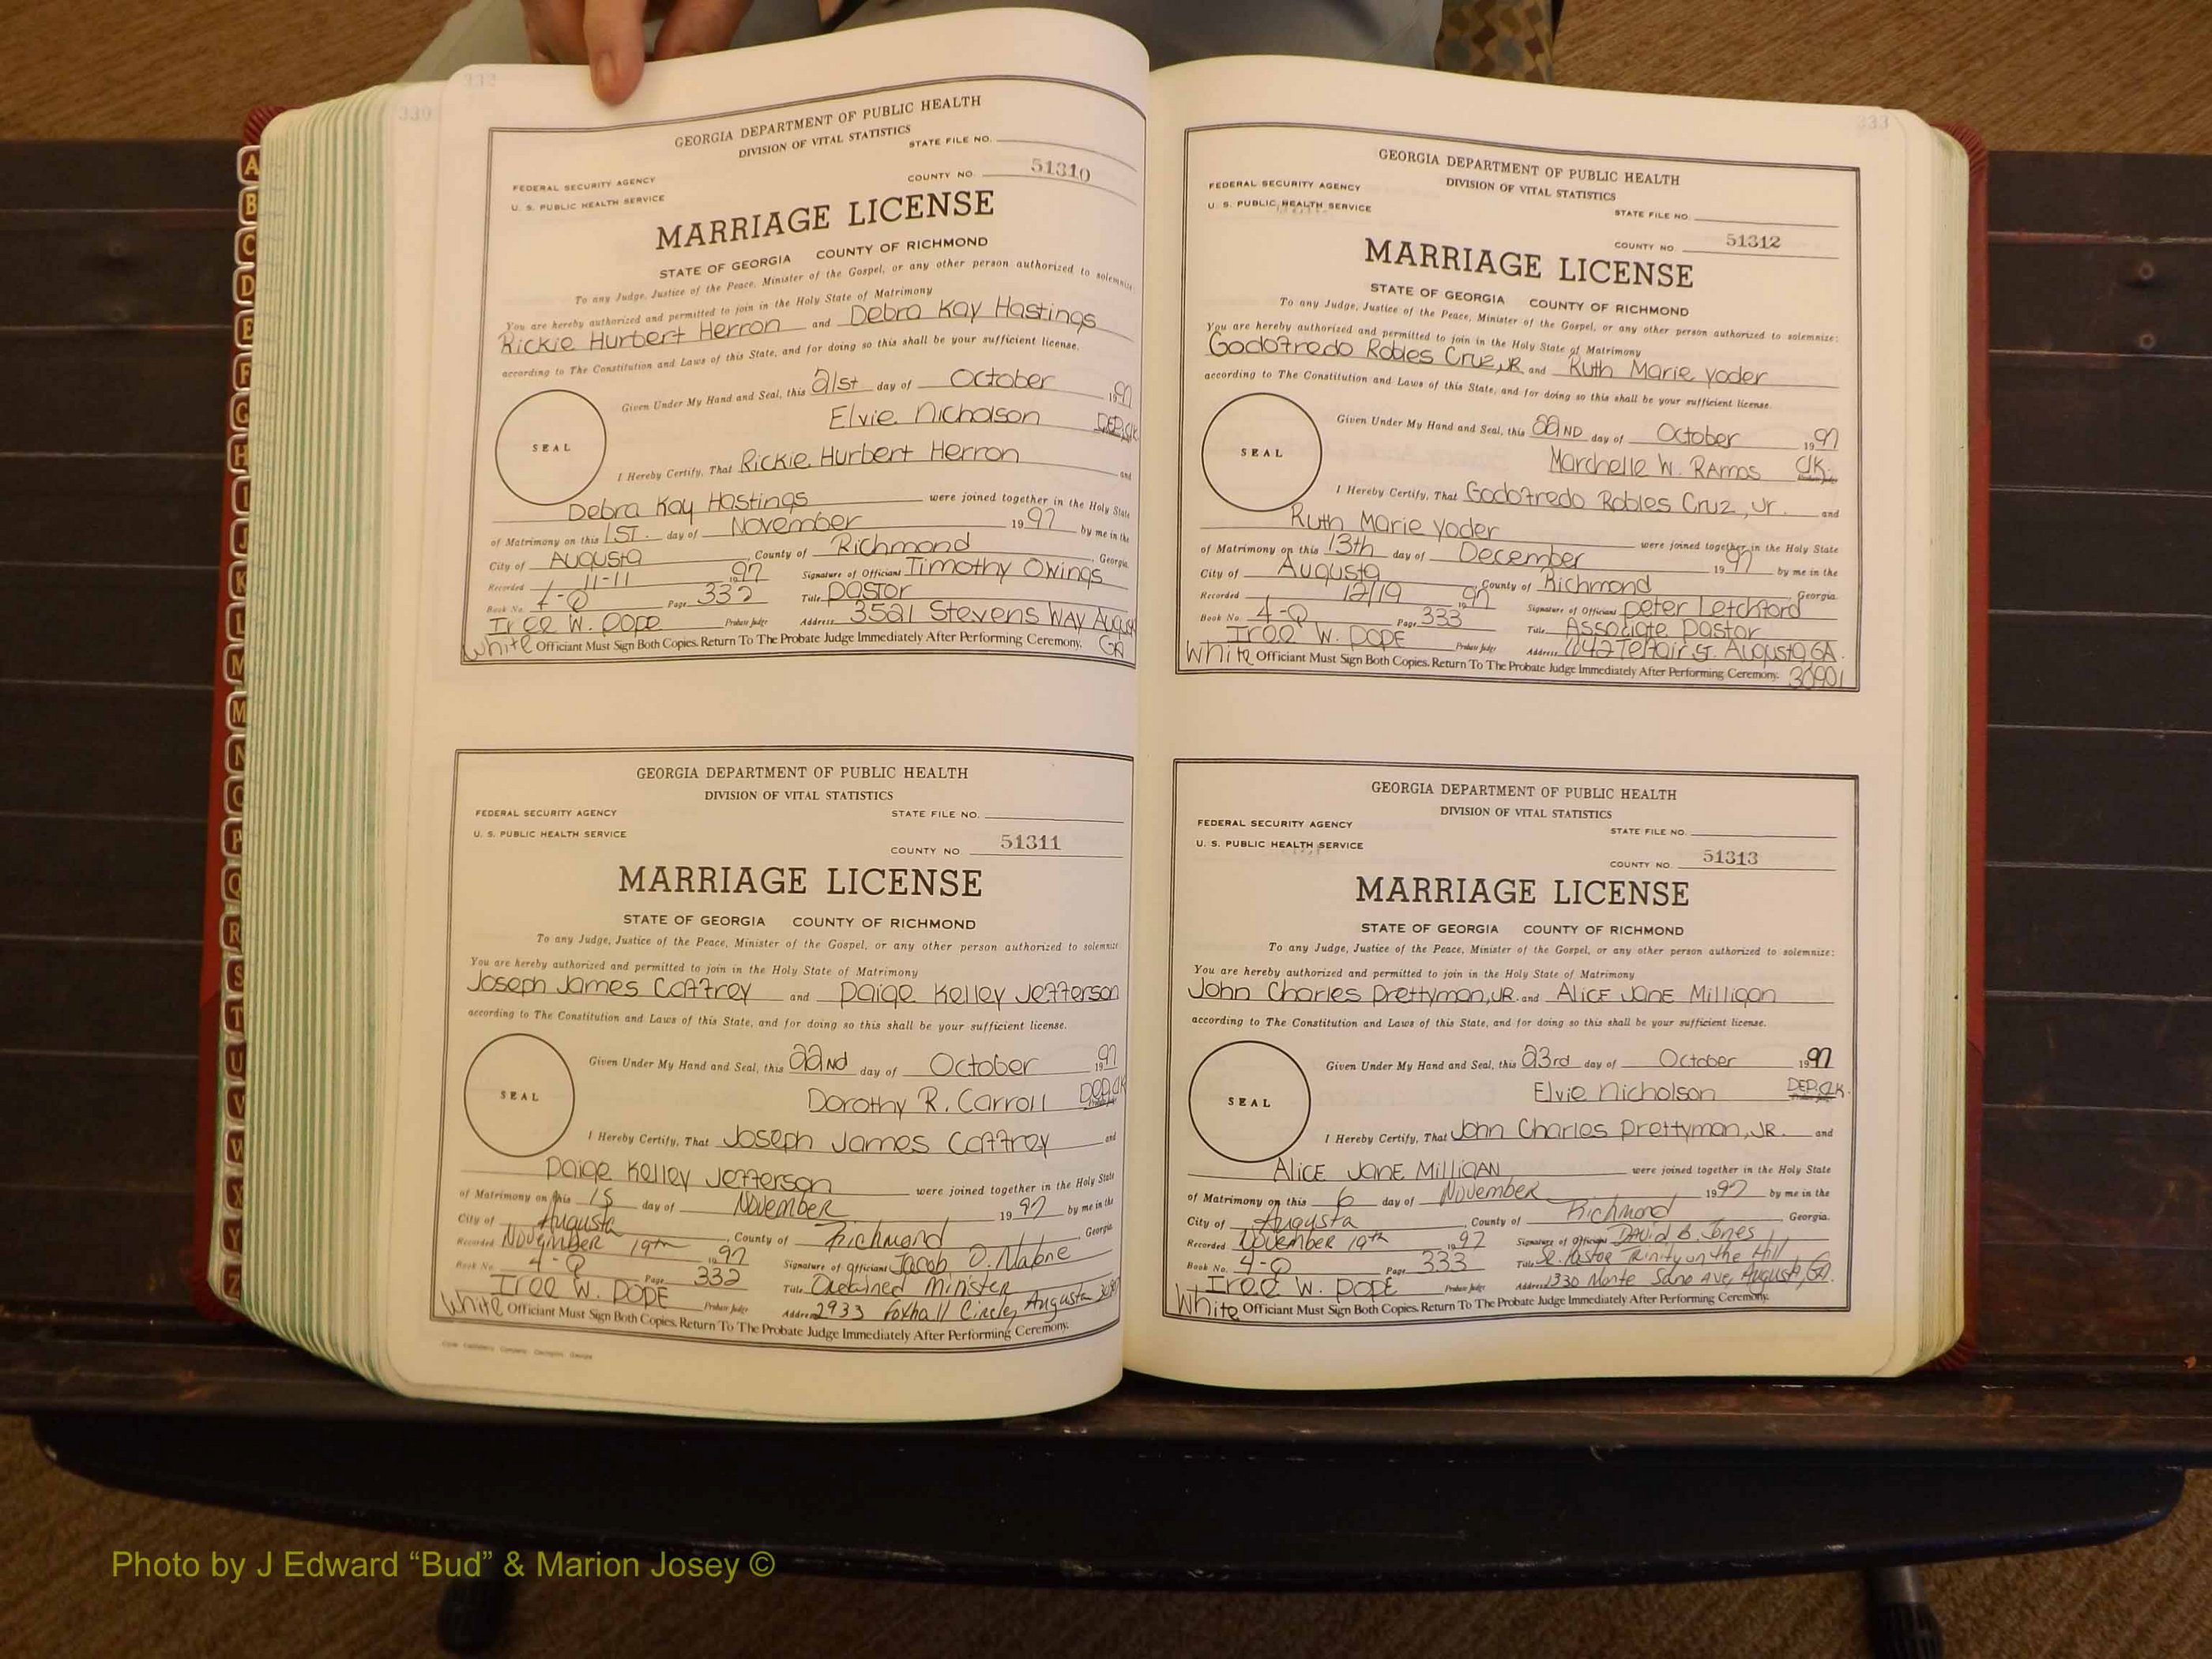 332
330
GEORGIA DEPARTMENT OF PUBLIC HEALTH
DIVISION OF VITAL STATISTICS
STATE FILE NO.
COUNTY NO 51310
FEDERAL SECURITY AGENCY
U. S. PUBLIC HEALTH SERVICE
MARRIAGE LICENSE
STATE OF GEORGIA COUNTY OF RICHMOND
To any Judge, Justice of the Peace, Minister of the Gospel, or any other person authorized to solemnize
You are hereby authorized and permitted to join in the Holy State of Matrimony
Rickie Hurbert Herron and Debra Kay Hastings
according to The Constitution and Laws of this State, and for doing so this shall be your sufficient license.
Given Under My Hand and Seal, this 21st day of October 1997
Elvie Nicholson DEP.CLK
SEAL
I Hereby Certify, That Rickie Hurbert Herron and
Debra Kay Hastings were joined together in the Holy State
of Matrimony on this 1ST. day of November 1997 by me in the
City of Augusta, County of Richmond, Georgia
Recorded 11-11 1997 Signature of Officiant Timothy Owings
Book No. 4-Q Page 332 Title Pastor
Iree W. Pope Probate Judge Address 3521 Stevens Way Augusta
White Officiant Must Sign Both Copies. Return To The Probate Judge Immediately After Performing Ceremony. GA
GEORGIA DEPARTMENT OF PUBLIC HEALTH
DIVISION OF VITAL STATISTICS
FEDERAL SECURITY AGENCY STATE FILE NO.
U. S. PUBLIC HEALTH SERVICE
COUNTY NO 51311
MARRIAGE LICENSE
STATE OF GEORGIA COUNTY OF RICHMOND
To any Judge, Justice of the Peace, Minister of the Gospel, or any other person authorized to solemnize
You are hereby authorized and permitted to join in the Holy State of Matrimony
Joseph James Caffrey and Paige Kelley Jefferson
according to The Constitution and Laws of this State, and for doing so this shall be your sufficient license.
Given Under My Hand and Seal, this 22ND day of October 1997
Dorothy R. Carroll DEP.CLK
SEAL
I Hereby Certify, That Joseph James Caffrey and
Paige Kelley Jefferson were joined together in the Holy State
of Matrimony on this 15 day of November 1997 by me in the
City of Augusta, County of Richmond Georgia
Recorded November 19th 1997 Signature of Officiant Jacob D. Malone
Book No. 4-Q Page 332 Title Ordained Minister
Iree W. Pope Probate Judge Address 2933 Foxhall Circle, Augusta
White Officiant Must Sign Both Copies. Return To The Probate Judge Immediately After Performing Ceremony.
333
GEORGIA DEPARTMENT OF PUBLIC HEALTH
DIVISION OF VITAL STATISTICS
FEDERAL SECURITY AGENCY
U. S. PUBLIC HEALTH SERVICE
STATE FILE NO.
COUNTY NO 51312
MARRIAGE LICENSE
STATE OF GEORGIA COUNTY OF RICHMOND
To any Judge, Justice of the Peace, Minister of the Gospel, or any other person authorized to solemnize:
You are hereby authorized and permitted to join in the Holy State of Matrimony
Godofredo Robles Cruz, JR. and Ruth Marie Yoder
according to The Constitution and Laws of this State, and for doing so this shall be your sufficient license.
Given Under My Hand and Seal, this 22ND day of October 1997
Marchelle W. Ramos Clk.
SEAL
I Hereby Certify, That Godofredo Robles Cruz, Jr. and
Ruth Marie Yoder were joined together in the Holy State
of Matrimony on this 13th day of December 1997 by me in the
City of Augusta, County of Richmond Georgia
Recorded 12/19 1997 Signature of Officiant Peter Letchford
Book No. 4-Q Page 333 Title Associate Pastor
Iree W. Pope Probate Judge Address 642 Telfair St. Augusta GA.
White Officiant Must Sign Both Copies. Return To The Probate Judge Immediately After Performing Ceremony. 30901
GEORGIA DEPARTMENT OF PUBLIC HEALTH
DIVISION OF VITAL STATISTICS
FEDERAL SECURITY AGENCY STATE FILE NO.
U. S. PUBLIC HEALTH SERVICE
COUNTY NO. 51313
MARRIAGE LICENSE
STATE OF GEORGIA COUNTY OF RICHMOND
To any Judge, Justice of the Peace, Minister of the Gospel, or any other person authorized to solemnize:
You are hereby authorized and permitted to join in the Holy State of Matrimony
John Charles Prettyman, JR. and Alice Jane Milligan
according to The Constitution and Laws of this State, and for doing so this shall be your sufficient license.
Given Under My Hand and Seal, this 23rd day of October 1997
Elvie Nicholson DEP.CLK.
SEAL
I Hereby Certify, That John Charles Prettyman, JR. and
Alice Jane Milligan were joined together in the Holy State
of Matrimony on this 6 day of November 1997 by me in the
City of Augusta, County of Richmond, Georgia.
Recorded November 19th 1997 Signature of Officiant David B. Jones
Book No. 4-Q Page 333 Title Sr. Pastor Trinity on the Hill
Iree W. Pope Probate Judge Address 1330 Monte Sano Ave, Augusta, GA.
White Officiant Must Sign Both Copies. Return To The Probate Judge Immediately After Performing Ceremony.
A
B
C
D
E
F
G
H
I
J
K
L
M
M
N
O
P
Q
R
S
T
U
V
W
X
Y
Z
Photo by J Edward “Bud” & Marion Josey ©